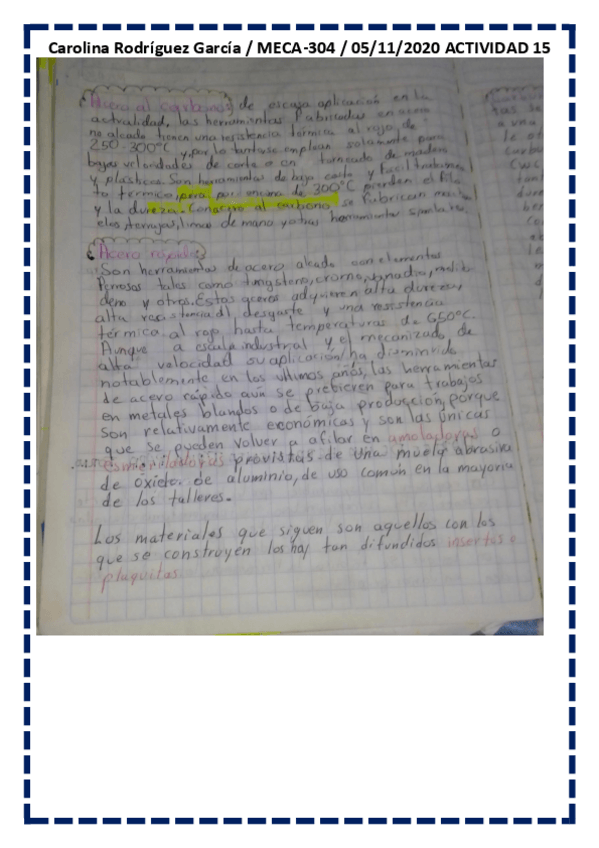 Carolina Rodríguez García / MECA-304 / 05/11/2020 ACTIVIDAD 15
Acero al carbono: de escasa aplicación en la
actualidad, las herramientas fabricadas en acero
no aleado tienen una resistencia térmica al rojo, de
250-300°C y, por lo tanto se emplean solamente para
bajas velocidades de corte o en torneado de madera
y plasticos. Son herramientas de bajo costo y facil tratamien
to termico, pero por encima de 300°C pierden el filo
y la dureza. Con acero al carbono se fabrican
de mano y otras herramientas
Acero rápido:
Son herramientas de acero aleado con elementos
ferrosos tales como tungsteno, cromo, vanadio, molib
deno y otros. Estos aceros adquieren alta dureza,
alta resistencia al desgaste y una resistencia
térmica al rojo hasta temperaturas de 650°C.
Aunque a escala industrial y el mecanizado de
alta velocidad su aplicación ha disminuido
notablemente en los ultimos años, las herramientas
de acero rápido aún se prefieren para trabajos
en metales blandos o de baja producción, porque
son relativamente económicas y son las únicas
que se pueden volver a afilar en amoladoras o
esmeriladoras provistas de una muela abrasiva
de óxido de aluminio, de uso común en la mayoria
de los talleres.
Los materiales que siguen son aquellos con los
que se construyen los hoy tan difundidos insertos o
plaquitas